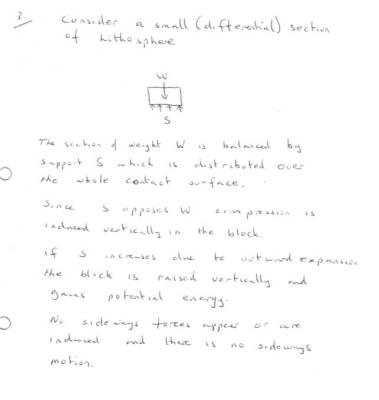 3. Consider a small (differential) section
of Lithosphere
W
S
The section of weight W is balanced by
support S which is distributed over
the whole contact surface.
Since S opposes W compression is
induced vertically in the block.
If S increases due to outward expansion
the block is raised vertically and
gains potential energy.
No sideways forces appear or are
induced and there is no sideways
motion.